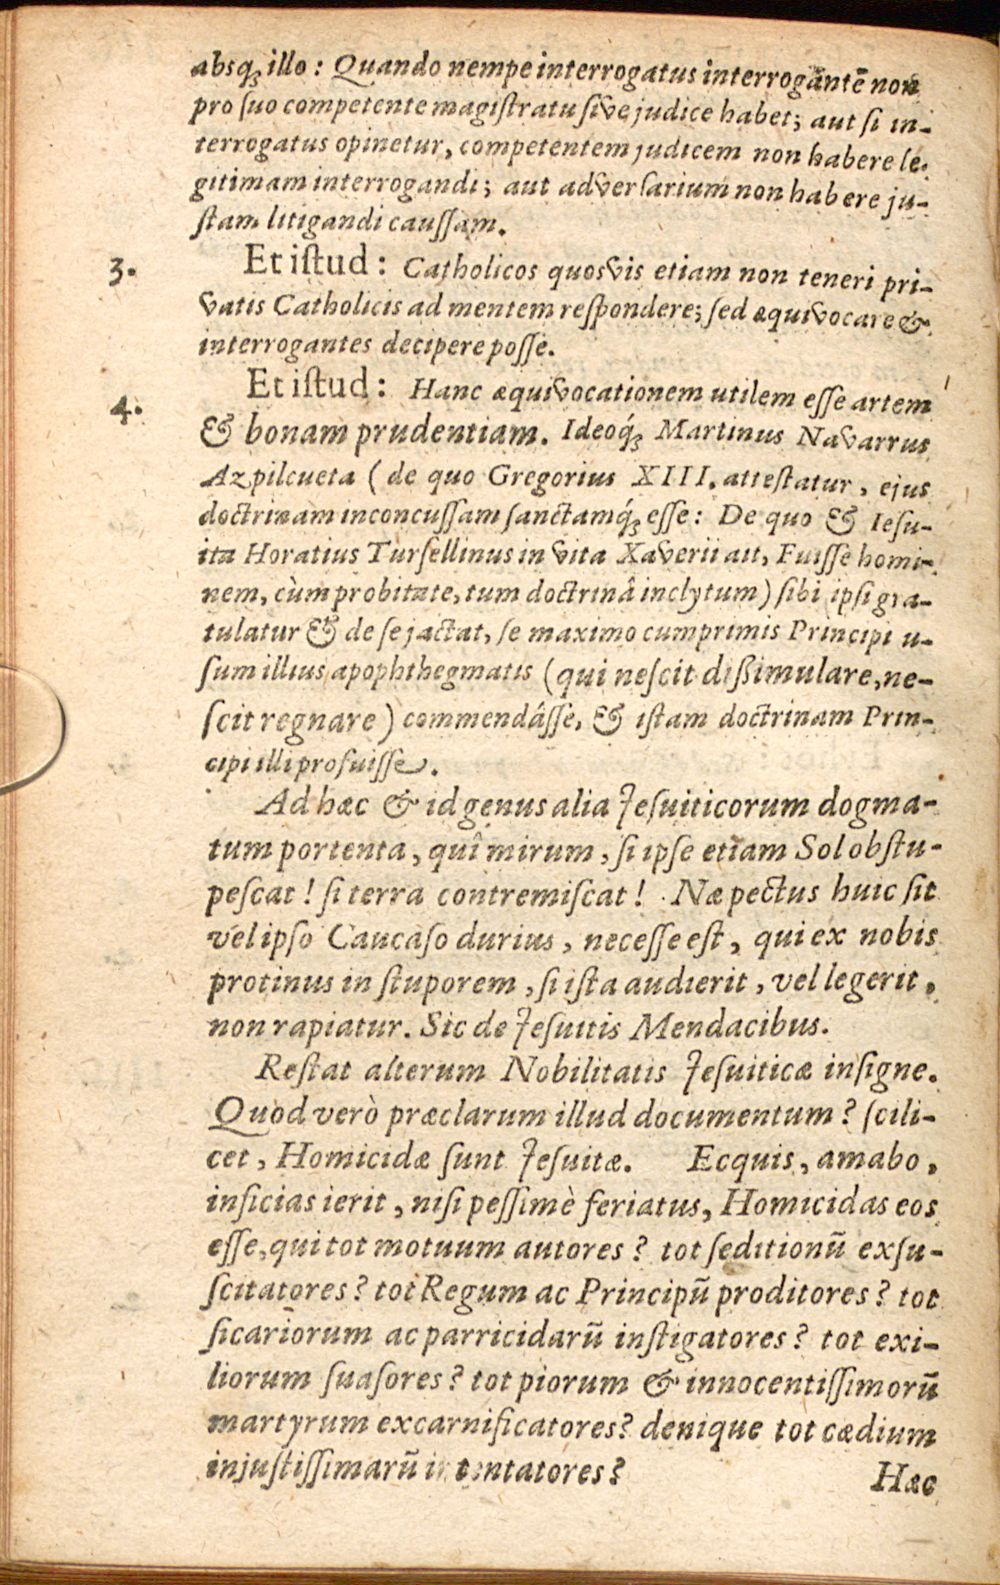 absq́ꝫ illo: Quando nempe interrogatus interrogantē non
pro ſuo competente magiſtratu ſive judice habet; aut ſi in-
terrogatus opinetur, competentem judicem non habere le-
gitimam interrogandi; aut adverſarium non habere ju-
ſtam litigandi cauſſam.
3. Et iſtud: Catholicos quosvis etiam non teneri pri-
vatis Catholicis ad mentem reſpondere; ſed æquivocare &
interrogantes decipere poſſe.
4. Et iſtud: Hanc æquivocationem utilem eſſe artem
& bonam prudentiam. Ideoq́ꝫ Martinus Navarrus
Azpilcueta (de quo Gregorius XIII. atteſtatur, ejus
doctrinam inconcuſſam ſanctamq́ꝫ eſſe: De quo & Ieſu-
ita Horatius Turſellinus in vita Xaverii ait, Fuiſſe homi-
nem, cùm probitate, tum doctrinâ inclytum) ſibi ipſi gra-
tulatur & de ſe jactat, ſe maximo cumprimis Principi u-
ſum illius apophthegmatis (qui neſcit dißimulare, ne-
ſcit regnare) commendâſſe, & iſtam doctrinam Prin-
cipi illi profuiſſe.
Ad hæc & id genus alia Jeſuiticorum dogma-
tum portenta, quî mirum, ſi ipſe etiam Sol obſtu-
peſcat! ſi terra contremiſcat! Næ pectus huic ſit
vel ipſo Caucaſo durius, neceſſe eſt, qui ex nobis
protinus in ſtuporem, ſi iſta audierit, vel legerit,
non rapiatur. Sic de Jeſuitis Mendacibus.
Reſtat alterum Nobilitatis Jeſuiticæ inſigne.
Quod verò præclarum illud documentum? ſcili-
cet, Homicidæ ſunt Jeſuitæ. Ecquis, amabo,
inficias ierit, niſi peſſimè feriatus, Homicidas eos
eſſe, qui tot motuum autores? tot ſeditionū exſu-
ſcitatores? tot Regum ac Principū proditores? tot
ſicariorum ac parricidarū inſtigatores? tot exi-
liorum ſuaſores? tot piorum & innocentiſſimorū
martyrum excarnificatores? denique tot cædium
injuſtiſſimarū intentatores?
Hæc